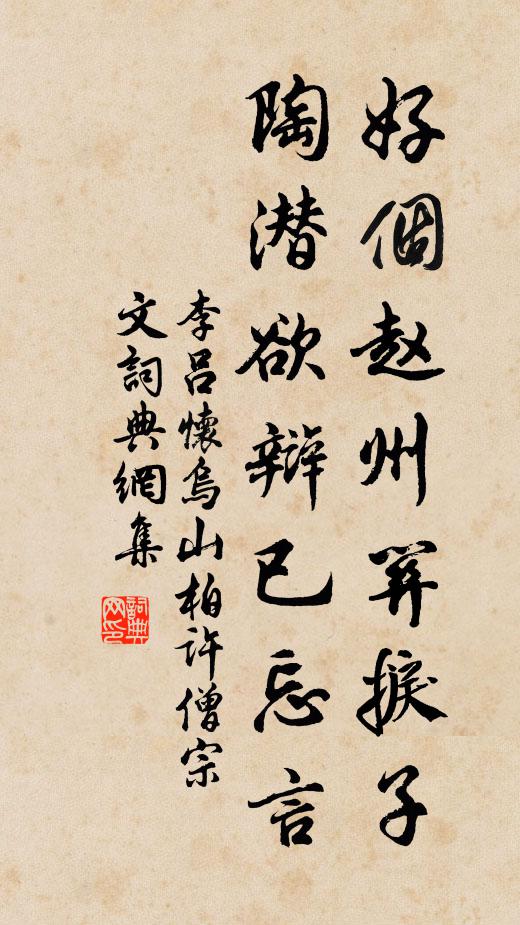 好個赵州關捩子
陶潜欲辩已忘言
李呂懷烏山柏许僧宗
文詞典網集
詞典网印